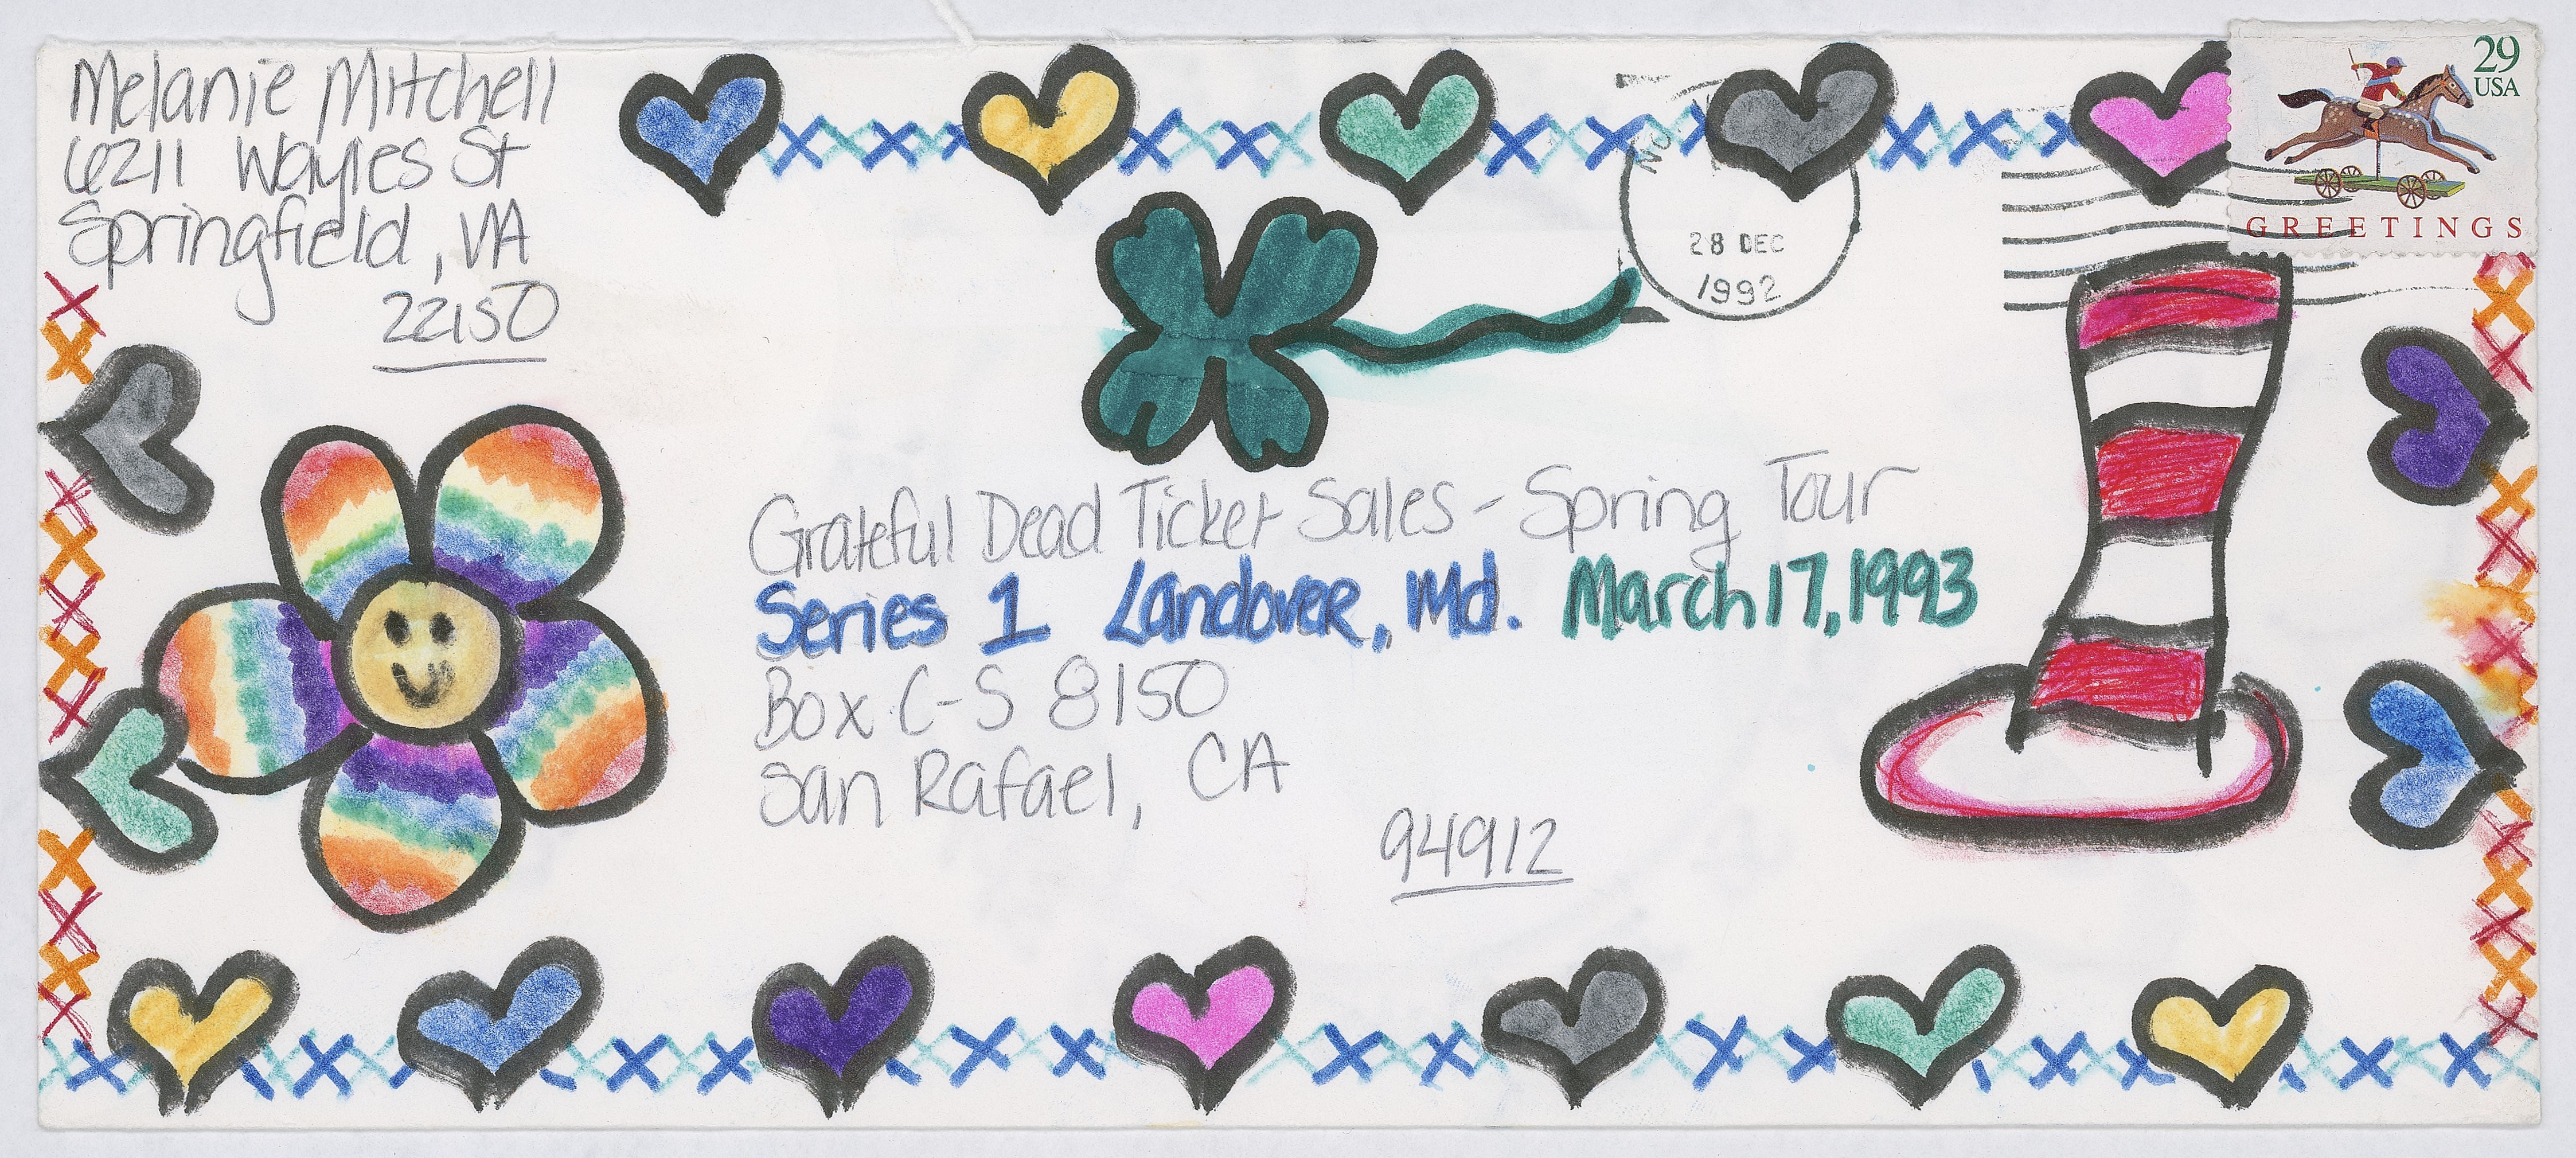 Melanie Mitchell
6211 Wayles St
Springfield, VA
22150
29
USA
GREETINGS
28 DEC
1992
Grateful Dead Ticket Sales - Spring Tour
Series 1 Landover, Md. March 17, 1993
Box C-S 8150
San Rafael, CA
94912